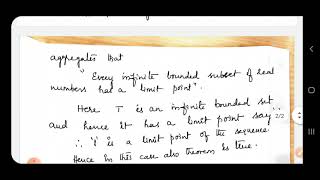 aggregates that
"Every infinite bounded subset of real
numbers has a limit point".
Here T is an infinite bounded set
and hence it has a limit point say
2/2
∴ 'l' is a limit point of the sequence.
Hence in this case also theorem is true.